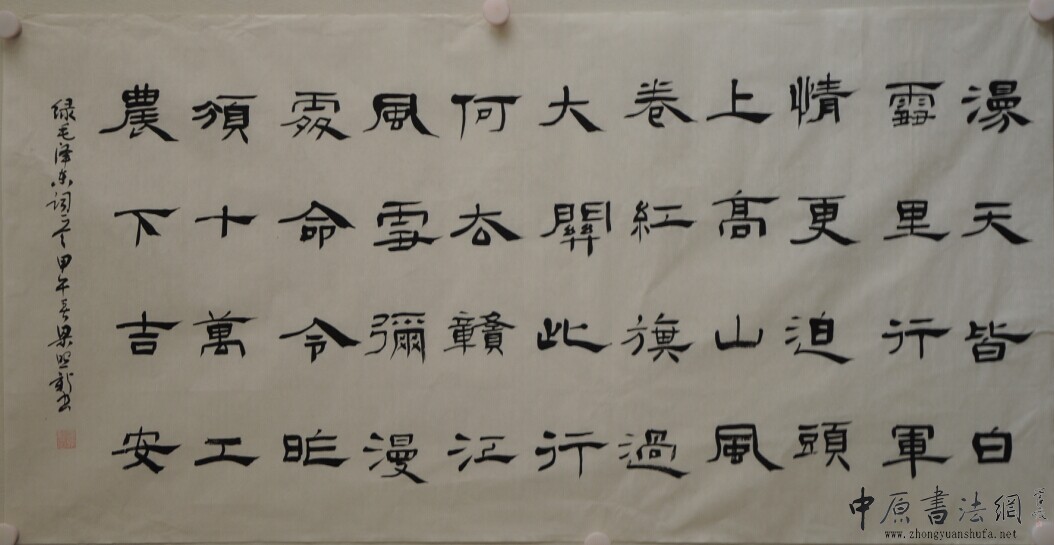 漫天皆白
雪里行軍
情更迫頭
上高山風
卷紅旗過
大關此行
何去贛江
風雪彌漫
處命令昨
頒十萬工
農下吉安
绿毛泽东词一首 甲午春 梁照新书
中原書法網
www.zhongyuanshufa.net